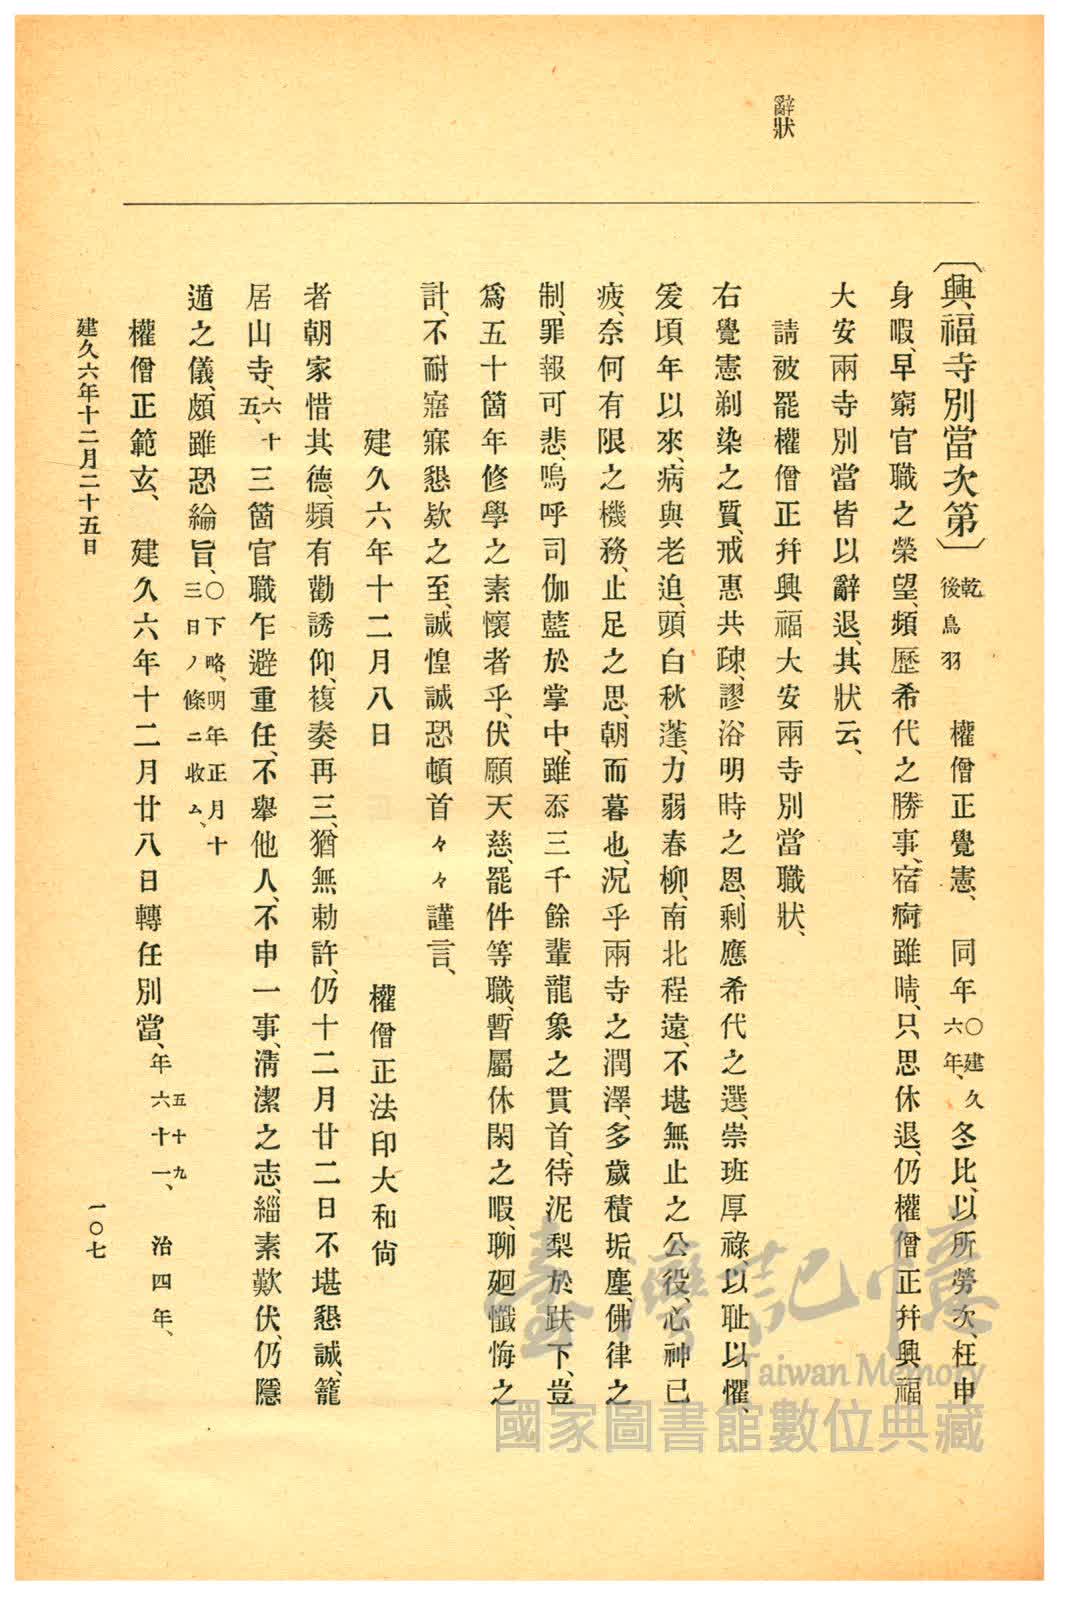 辭狀
〔興福寺別當次第〕乾後鳥羽 權僧正覺憲、 同年○建久六年、冬比、以所勞次、枉申
身暇、早窮官職之榮望、頻歷希代之勝事、宿痾雖晴、只思休退、仍權僧正幷興福
大安兩寺別當皆以辭退、其狀云、
請被罷權僧正幷興福大安兩寺別當職狀、
右覺憲剃染之質、戒惠共疎、謬浴明時之恩、剩應希代之選、崇班厚祿、以耻以懼、
爰頃年以來、病與老迫、頭白秋蓬、力弱春柳、南北程遠、不堪無止之公役、心神已
疲、奈何有限之機務、止足之思、朝而暮也、況乎兩寺之潤澤、多歲積垢塵、佛律之
制、罪報可悲、嗚呼司伽藍於掌中、雖忝三千餘輩龍象之貫首、待泥梨於趺下、豈
爲五十箇年修學之素懷者乎、伏願天慈、罷件等職、暫屬休閑之暇、聊廻懺悔之
計、不耐寤寐懇欵之至、誠惶誠恐頓首々々謹言、
建久六年十二月八日 權僧正法印大和尙
者朝家惜其德、頻有勸誘仰、複奏再三、猶無勅許、仍十二月廿二日不堪懇誠、籠
居山寺、六十五、三箇官職乍避重任、不擧他人、不申一事、淸潔之志、緇素歎伏、仍隱
遁之儀、頗雖恐綸旨、○下略、明年正月十三日ノ條ニ收ム、
權僧正範玄、 建久六年十二月廿八日轉任別當、五十九年六十一、 治四年、
建久六年十二月二十五日
一〇七
臺灣記憶
Taiwan Memory
國家圖書館數位典藏